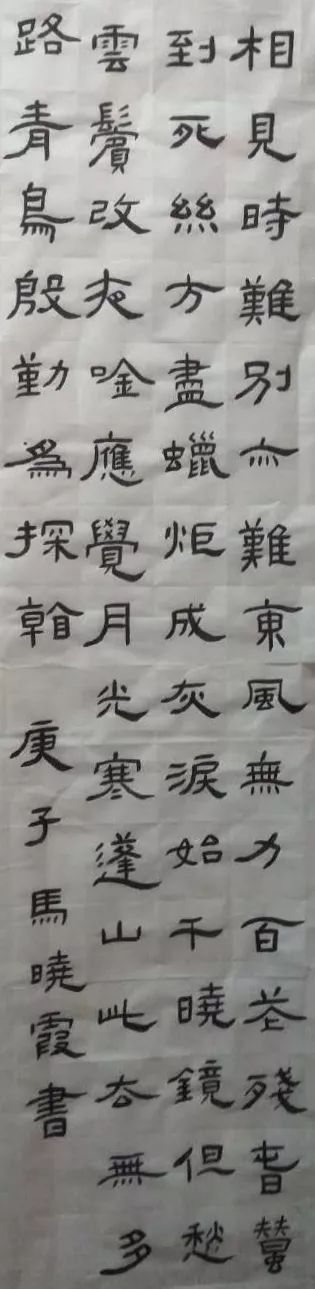 相見時難別亦難東風無力百花殘春蠶
到死絲方盡蠟炬成灰淚始干曉鏡但愁
雲鬢改夜唫應覺月光寒蓬山此去無多
路青鳥殷勤為探看
庚子馬曉霞書